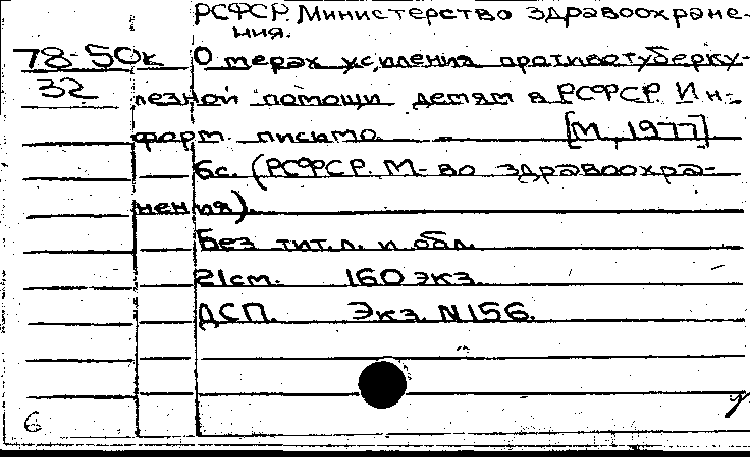 РСФСР. Министерство здравоохране-
ния.
78-50к О мерах усиления противотуберку-
32 лезной помощи детям в РСФСР. Ин-
форм. письмо. – [М., 1977].
6с. (РСФСР. М-во здравоохра-
нения).
Без тит.л. и обл.
21см. 160 экз.
ДСП. Экз. N156.
6